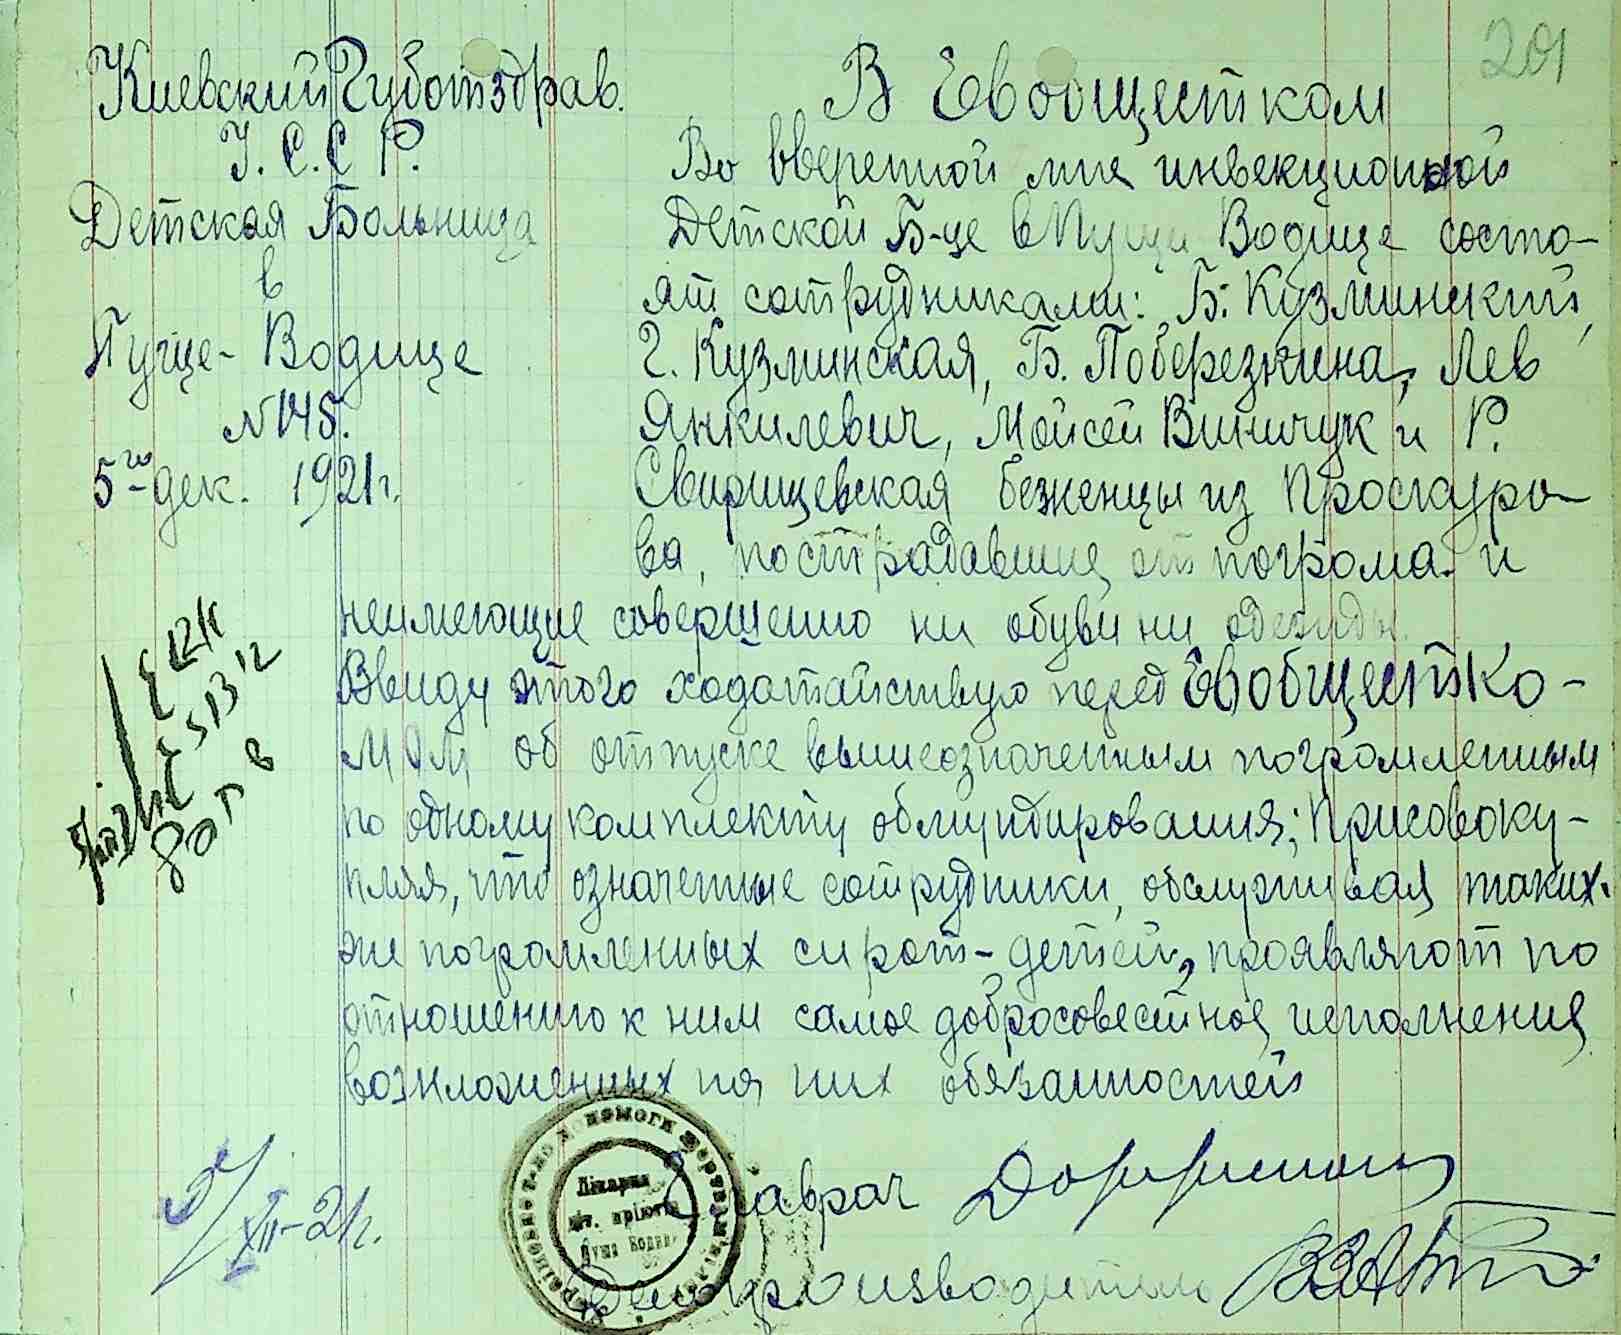 201
Киевский Губотздрав.
У. С. С. Р.
Детская Больница
в
Пуще-Водице
N 145.
5го дек. 1921 г.
В Евобщестком
Во вверенной мне инвекционной
Детской Б-це в Пущи Водице состо-
ят сотрудниками: Б. Кузминский,
Г. Кузминская, Б. Поберезкина, Лев
Янкилевич, Мойсей Виничук и Р.
Свирищевская беженцы из Проскуро-
ва, пострадавшие от погрома и
неимеющие совершенно ни обуви ни одежды.
Ввиду этого ходотайствую перед Евобщестко-
мом об отпуске вышеозначенным погромленным
по одному комплекту обмундирования; Присовоку-
пляя, что означенные сотрудники, обслуживая таких-
же погромленных сирот-детей, проявляют по
отношению к ним самое добросовестное исполнения
возложенных на них обязанностей
Главрач
Делопроизводитель
XII-21 г.
допомоги
Лікарня
діт. пріютів
Пуща Водиця